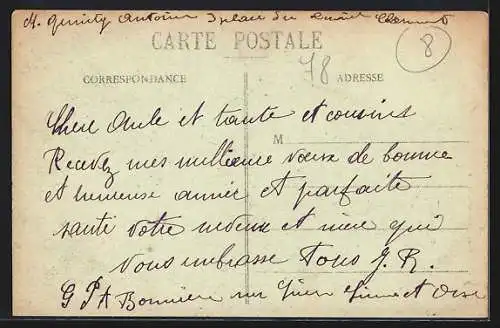 Antoine 3 place du
CARTE POSTALE
8
78
CORRESPONDANCE
ADRESSE
Chere Oncle et tante et cousins
M
Recevez mes meilleure vœux de bonne
et heureuse année et parfaite
santé votre neveux et niece qui
vous embrasse Tous J. R.
Bonnière sur Seine et Oise